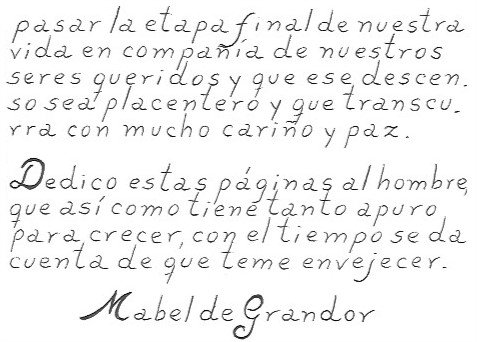 pasar la etapa final de nuestra
vida en compañía de nuestros
seres queridos y que ese descen.
so sea placentero y que transcu.
rra con mucho cariño y paz.
Dedico estas páginas al hombre,
que así como tiene tanto apuro
para crecer, con el tiempo se da
cuenta de que teme envejecer.
Mabel de Grandor